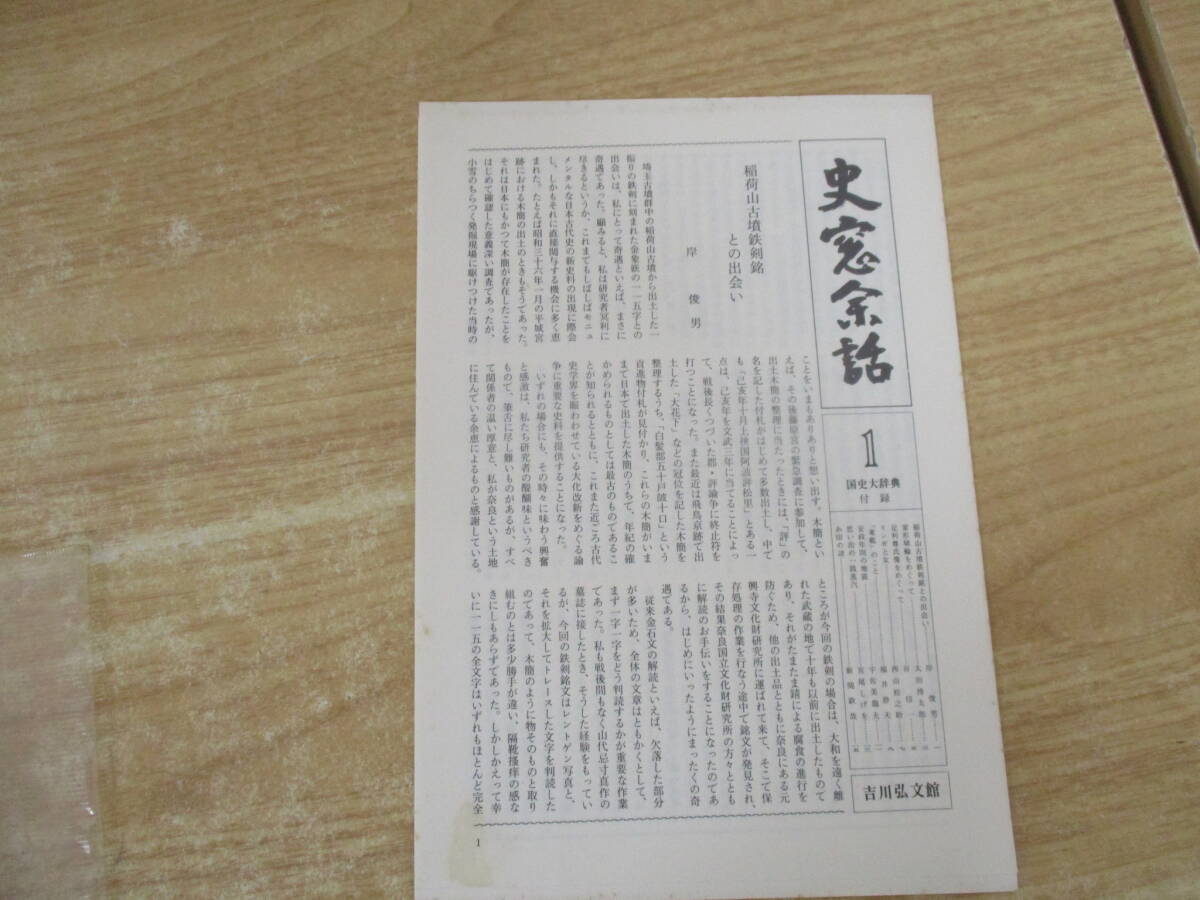 史窓余話
1
国史大辞典
付録
稲荷山古墳鉄剣銘との出会い 岸俊男 一
吉川弘文館
稲荷山古墳鉄剣銘
との出会い
岸俊男
埼玉古墳群中の稲荷山古墳から出土した一
振りの鉄剣に刻まれた金象嵌の一一五字との
出会いは、私にとって奇遇といえば、まさに
奇遇であった。顧みると、私は研究者冥利に
尽きるというか、これまでもしばしばモニュ
メンタルな日本古代史の新史料の出現に際会
し、しかもそれに直接関与する機会に多く恵
まれた。たとえば昭和三十六年一月の平城宮
跡における木簡の出土のときもそうであった。
それは日本にもかつて木簡が存在したことを
はじめて確認した意義深い調査であったが、
小雪のちらつく発掘現場に駆けつけた当時の
ことをいまもありありと想い出す。木簡とい
えば、その後藤原宮の緊急調査に参加して、
出土木簡の整理に当たったときには、「評」の
名を記した付札がはじめて多数出土し、中で
も「己亥年十月上捄国阿波評松里」とある一
点は、己亥年を文武三年に当てることによっ
て、戦後長くつづいた郡・評論争に終止符を
打つことになった。また最近は飛鳥京跡で出
土した「大花下」などの冠位を記した木簡を
整理するうち、「白髪部五十戸皷十口」という
貢進物付札が見付かり、これらの木簡がいま
まで日本で出土した木簡のうちで、年紀の確
かめられるものとしては最古のものであるこ
とが知られるとともに、これまた近ごろ古代
史学界を賑わわせている大化改新をめぐる論
争に重要な史料を提供することになった。
いずれの場合にも、その時々に味わう興奮
と感激は、私たち研究者の醍醐味というべき
もので、筆舌に尽し難いものがあるが、すべ
て関係者の温い厚意と、私が奈良という土地
に住んでいる余恵によるものと感謝している。
ところが今回の鉄剣の場合は、大和を遠く離
れた武蔵の地で十年も以前に出土したもので
あり、それがたまたま錆による腐食の進行を
防ぐため、他の出土品とともに奈良にある元
興寺文化財研究所に運ばれて来て、そこで保
存処理の作業を行なう途中で銘文が発見され、
その結果奈良国立文化財研究所の方々ととも
に解読のお手伝いをすることになったのであ
るから、はじめにいったようにまったくの奇
遇である。
従来金石文の解読といえば、欠落した部分
が多いため、全体の文章はともかくとして、
まず一字一字をどう判読するかが重要な作業
であった。私も戦後間もなく山代忌寸真作の
墓誌に接したとき、そうした経験をもってい
るが、今回の鉄剣銘文はレントゲン写真と、
それを拡大してトレースした文字を判読した
のであって、木簡のように物そのものと取り
組むのとは多少勝手が違い、隔靴掻痒の感な
きにしもあらずであった。しかしかえって幸
いに一一五の全文字はいずれもほとんど完全
1